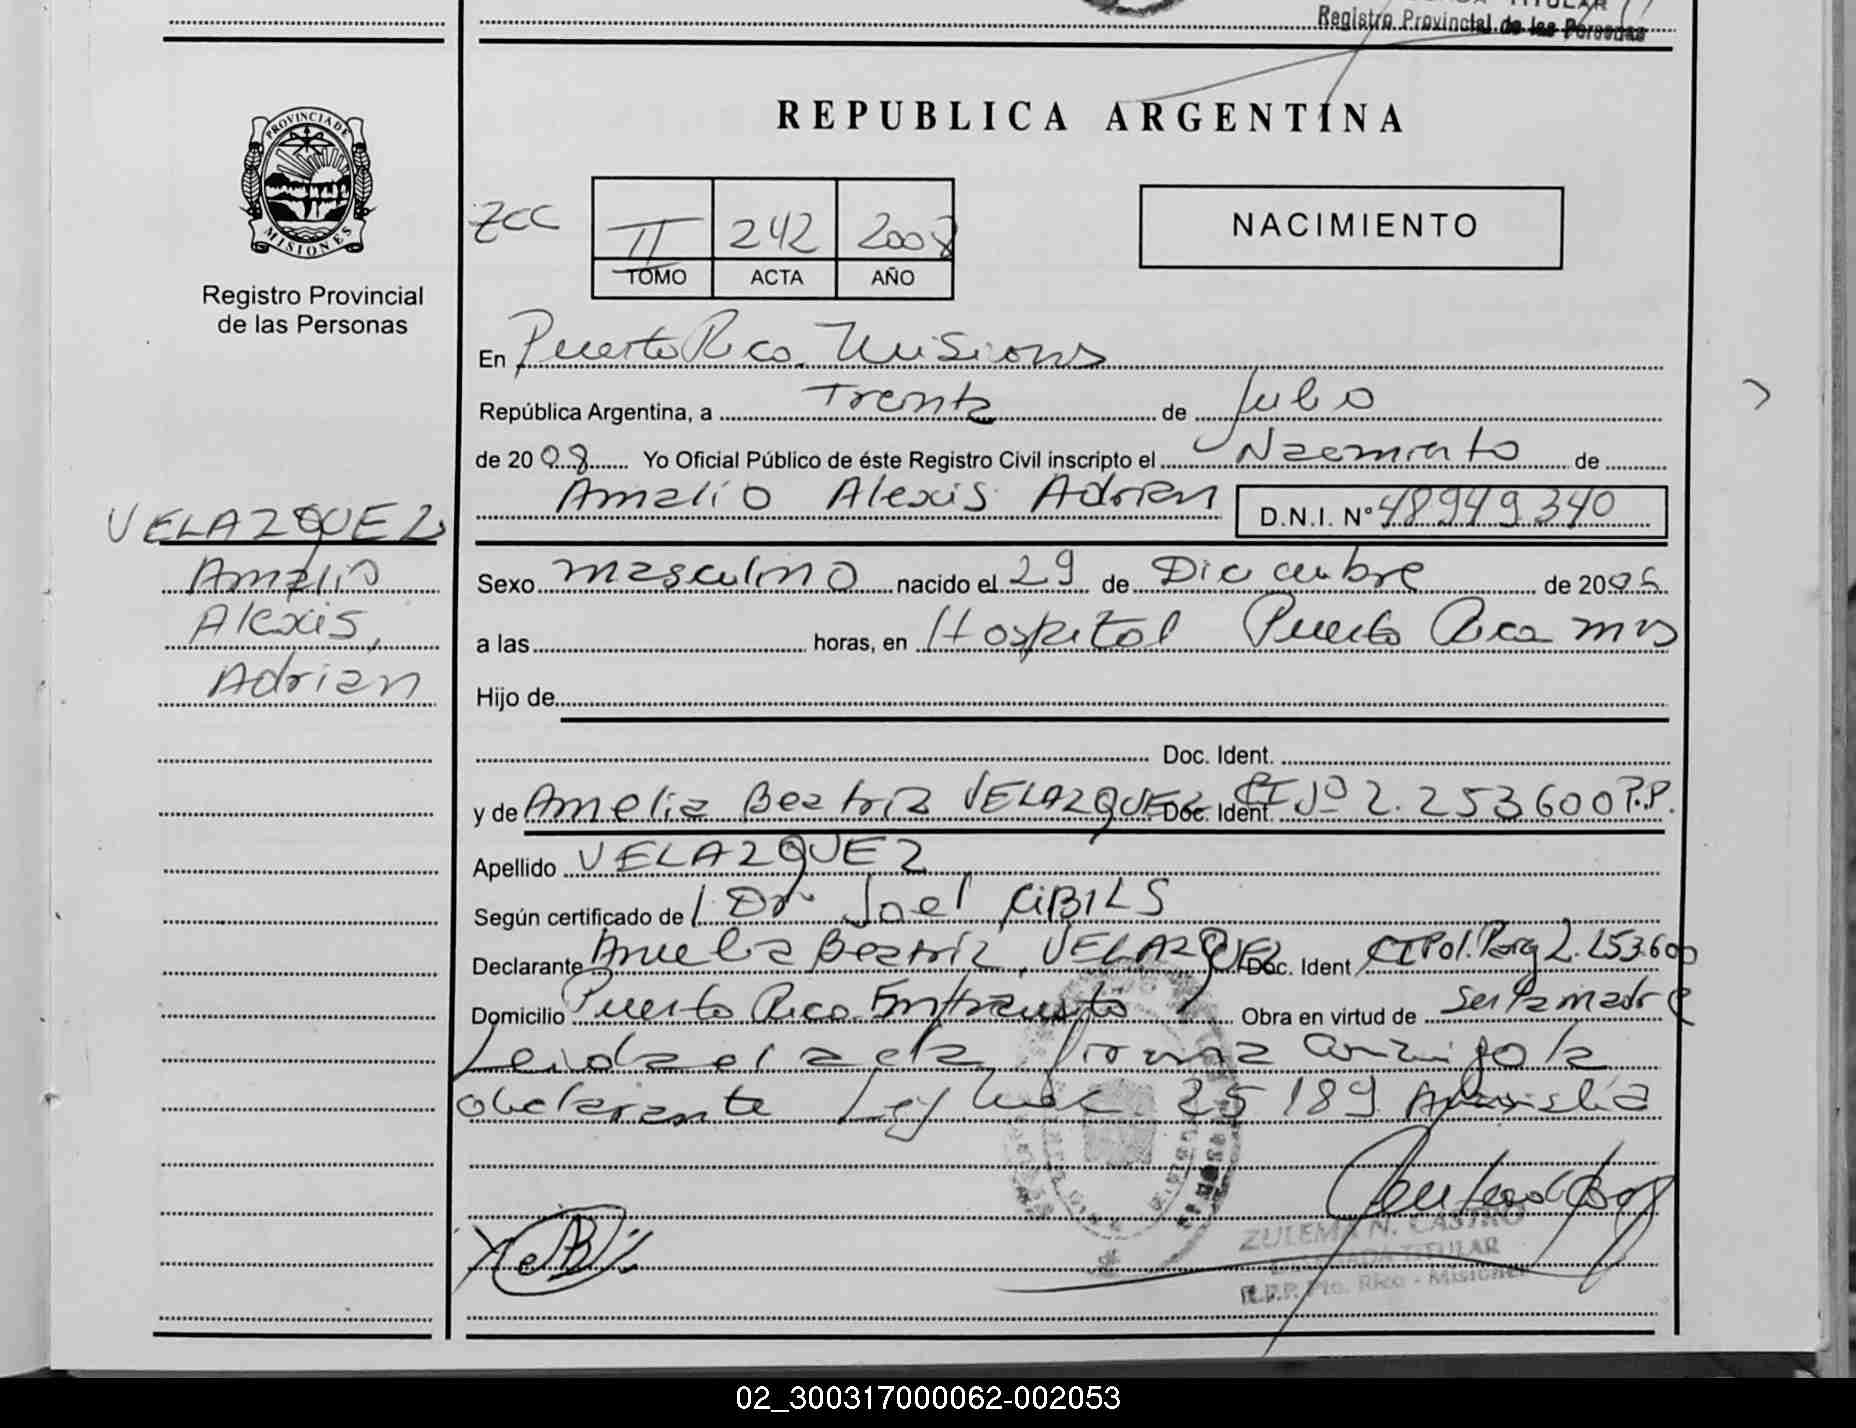 TITULAR
Registro Provincial de las Personas
PROVINCIA DE
MISIONES
Registro Provincial
de las Personas
REPUBLICA ARGENTINA
ZCC
II 242 2008
TOMO ACTA AÑO
NACIMIENTO
En Puerto Rico Misiones
República Argentina, a Treinta de Julio
de 2008 Yo Oficial Público de éste Registro Civil inscripto el Nacimiento de
Amalio Alexis Adrian D.N.I. N° 48949340
VELAZQUEZ
Amalio
Alexis,
Adrian
Sexo masculino nacido el 29 de Diciembre de 20
a las horas, en Hospital Puerto Rico Mns
Hijo de
Doc. Ident.
y de Amelia Beatriz VELAZQUEZ Doc. Ident. CI Nº 2.253600 P.P.
Apellido VELAZQUEZ
Según certificado de Dr. Joel CIBILS
Declarante Amelia Beatriz VELAZQUEZ Doc. Ident CI Pol. Parg 2.253.600
Domicilio Puerto Rico En transito Obra en virtud de ser la madre
Leida el acta firma conmigo la
declarante Ley Nac 25189 Amnistia
ZULEMA N. CASTRO
DELEGADA TITULAR
R.P.P. Pto. Rico - Misiones
02_300317000062-002053